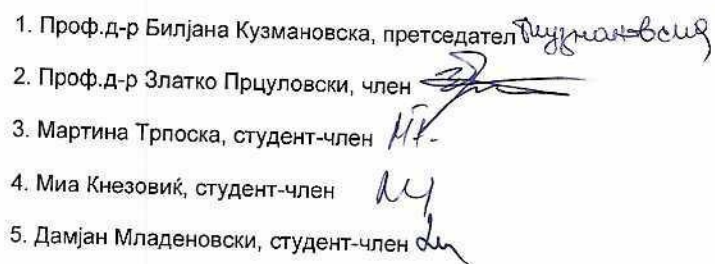 1. Проф.д-р Билјана Кузмановска, претседател
2. Проф.д-р Златко Прцуловски, член
3. Мартина Трпоска, студент-член
4. Миа Кнезовиќ, студент-член
5. Дамјан Младеновски, студент-член